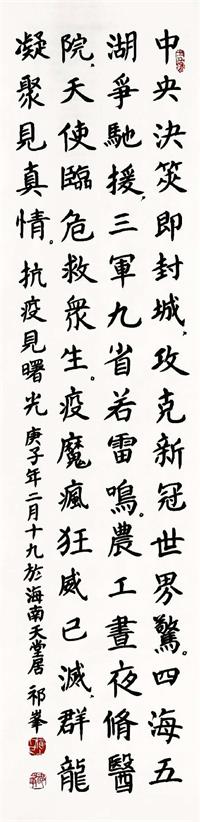 中央決筴即封城,攻克新冠世界驚。四海五
湖爭馳援,三軍九省若雷鳴。農工晝夜脩醫
院,天使臨危救衆生。疫魔瘋狂威已滅,群龍
凝聚見真情。抗疫見曙光 庚子年二月十九於海南天堂居 祁峯